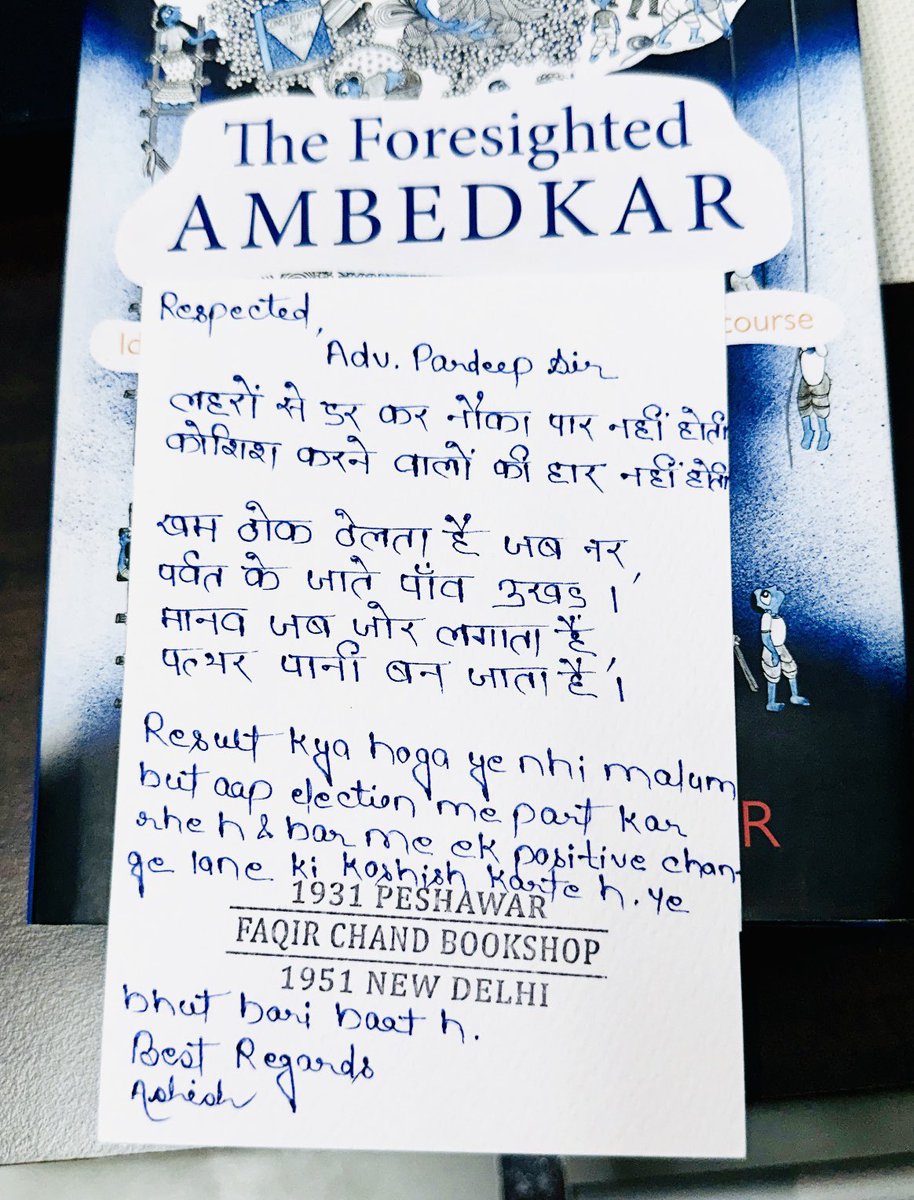 The Foresighted
AMBEDKAR
course
Respected,
Adv. Pardeep Sir
लहरों से डर कर नौका पार नहीं होती
कोशिश करने वालों की हार नहीं होती
खम ठोक ठेलता है जब नर
पर्वत के जाते पाँव उखड़ ।
मानव जब जोर लगाता हैं
पत्थर पानी बन जाता है ।
Result kya hoga ye nhi malum
but aap election me part kar
rhe h & bar me ek positive chan-
ge lane ki koshish karte h. ye
1931 PESHAWAR
FAQIR CHAND BOOKSHOP
1951 NEW DELHI
bhut bari baat h.
Best Regards
Ashish